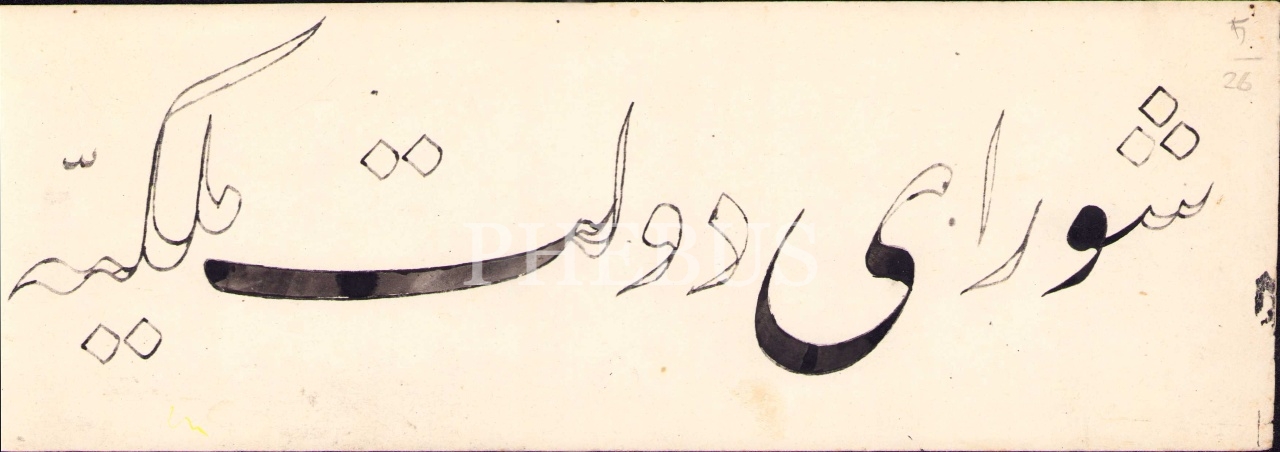 شورای دولت ملكيّه
PHEBUS
26